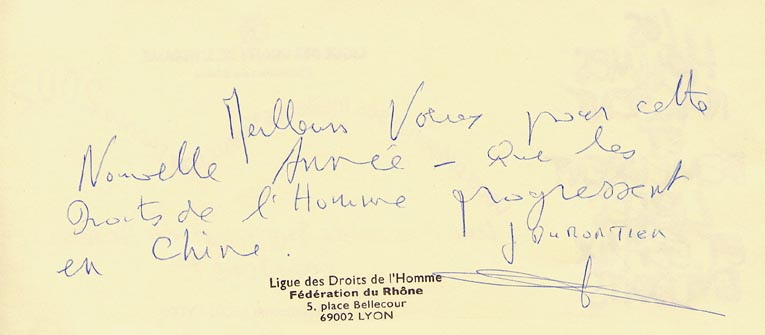 Meilleurs Voeux pour cette
Nouvelle Année - Que les
Droits de l'Homme progressent
en Chine.
J DUMORTIER
Ligue des Droits de l'Homme
Fédération du Rhône
5, place Bellecour
69002 LYON